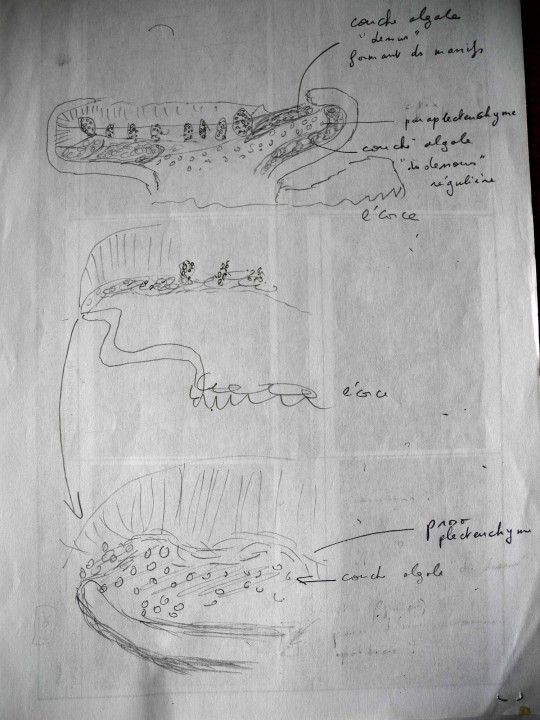 couche algale
"dessus"
formant des massifs
paraplectenchyme
couche algale
"de dessous"
régulière
l'écorce
l'écorce
proso
plectenchyme
couche algale